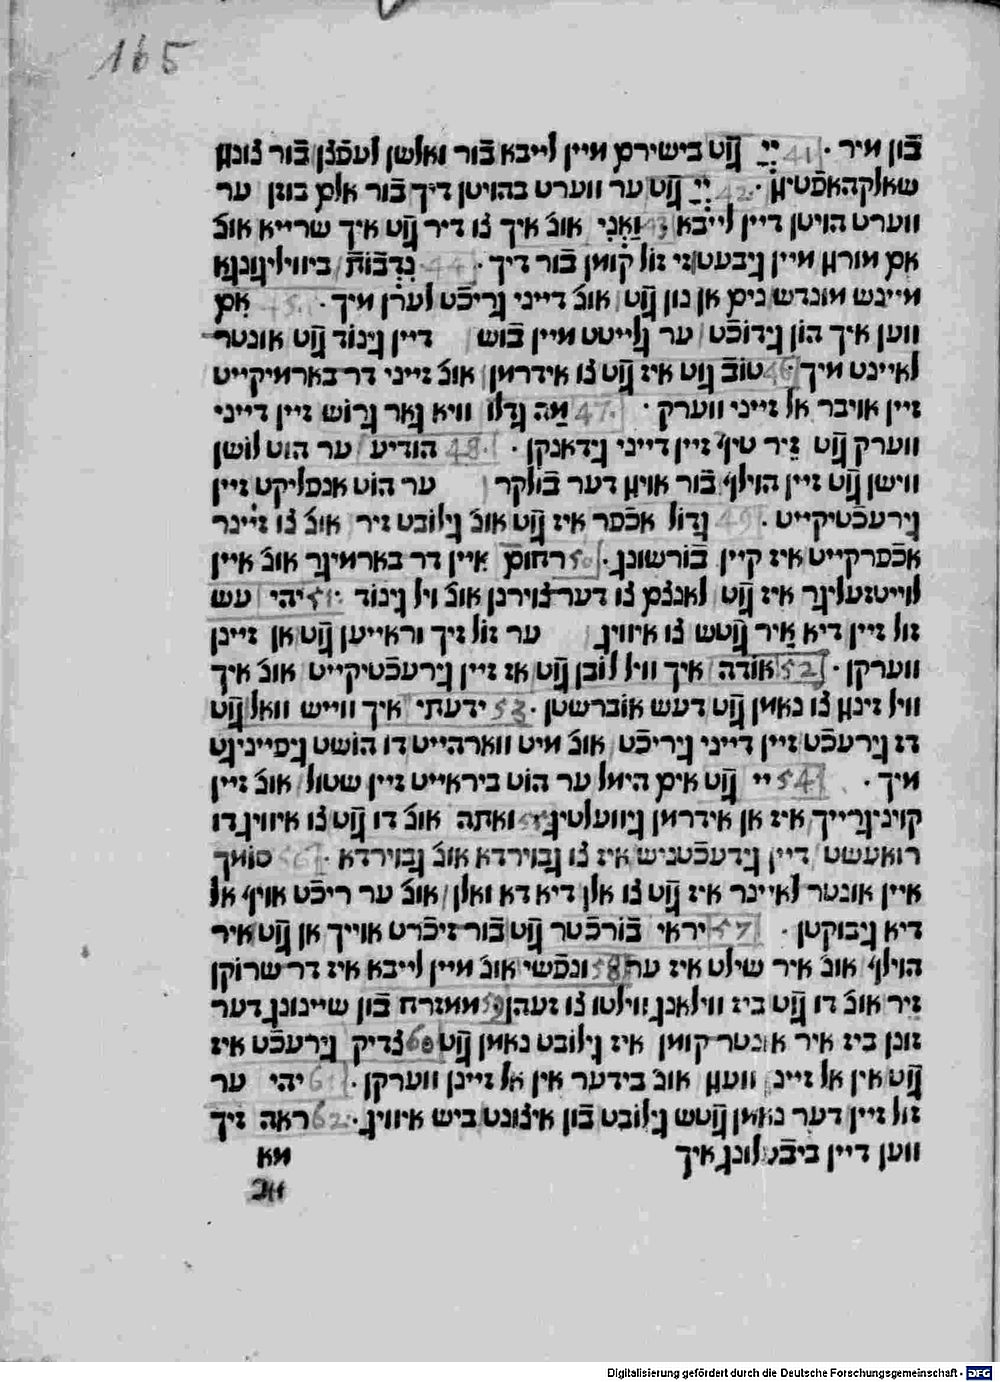 165
בֿון מיר · 41 יי גוט בישירם מיין לייבא בֿור ואלשן לעפֿצן בֿור צונג
שאלקהאפֿטיג · 42 יי גוט ער ווערט בהויטן דיך בֿור אלם בוזן ער
ווערט הויטן דיין לייבא 43 וַאֲנִי אונ איך צו דיר גוט איך שרייא אונ
אם מורג מיין גיבעט זי זול קומן בֿור דיך · 44 נִדְבוֹת ביווילגונגא
מיינש מונדש נים אן נון גוט אונ דייני גריכֿט לערן מיך · 45 אם
ווען איך הון גידוכֿט ער לייטט מיין בֿוש דיין גינוד גוט אונטר
לאיינט מיך · 46 טוב גוט איז גוט צו אידרמן אונ זייני דר בארמיקייט
זיין אויבר אל זייני ווערק · 47 מַה גדלו וויא גאר גרוש זיין דייני
ווערק גוט זיר טיף זיין דייני גידאנקן · 48 הודיע ער הוט לושן
ווישן גוט זיין הוילף בֿור אויג דער בֿולקר ער הוט אנפליקט זיין
גירעכֿטיקייט · 49 גדול אכֿפר איז גוט אונ גילובט זיר אונ צו זיינר
אכֿפרקייט איז קיין בֿורשונג · 50 רחום איין דר בארמיגר אונ איין
לייטזעליגר איז גוט לאנצם צו דערצוירנן אונ ויל גינוד · 51 יהי עש
זול זיין דיא איר גוטש צו איוויג ער זול זיך וראייען גוט אן זיינן
ווערקן · 52 אודה איך וויל לובן גוט אז זיין גירעכֿטיקייט אונ איך
וויל זינג צו נאמן גוט דעש אוברשטן · 53 ידעתי איך ווייש וואל גוט
דז גירעכֿט זיין דייני גיריכֿט אונ מיט ווארהייט דו הושט גיפייניגט
מיך · 54 יי גוט אים הימל ער הוט ביראייט זיין שטול אונ זיין
קויניגרייך איז אן אידרמן גיוועלטיג 55 ואתה אונ דו גוט צו איוויג דו
רואעשט דיין גידעכֿטניש איז צו גבוירדא אונ גבוירדא · 56 סומך
איין אונטר לאיינר איז גוט צו אלן דיא דא ואלן אונ ער ריכֿט אויף אל
דיא גיבוקטן · 57 יראי בֿורכֿטר גוט בֿור זיכֿרט אוייך אן גוט איר
הוילף אונ איר שילט איז ער 58 ונפֿשי אונ מיין לייבא איז דר שרוקן
זיר אונ דו גוט ביז ווילאנג ווילטו צו זעהן 59 ממזרח בֿון שיינונג דער
זונן ביז איר אונטר קומן איז גילובט נאמן גוט 60 צדיק גירעכֿט איז
גוט אין אל זיינן וועג אונ בידער אין אל זיינן ווערקן · 61 יהי ער
זול זיין דער נאמן גוטש גילובט בֿון איצונט ביש איוויג · 62 ראה זיך
ווען דיין ביבֿעלונג איך מא